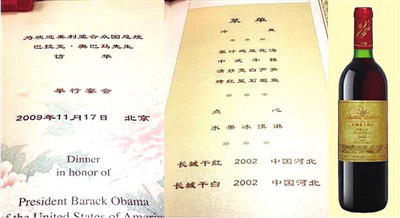 为欢迎美利坚合众国总统
巴拉克·奥巴马先生
访 华
举行宴会
2009年11月17日 北京
Dinner
in honor of
President Barack Obama
of the United States of America
菜 单
冷 盘
翠汁鸡豆花汤
中式牛排
清炒茭白芦笋
烤红星石斑鱼
点 心
水果冰淇淋
长城干红 2002 中国河北
长城干白 2002 中国河北